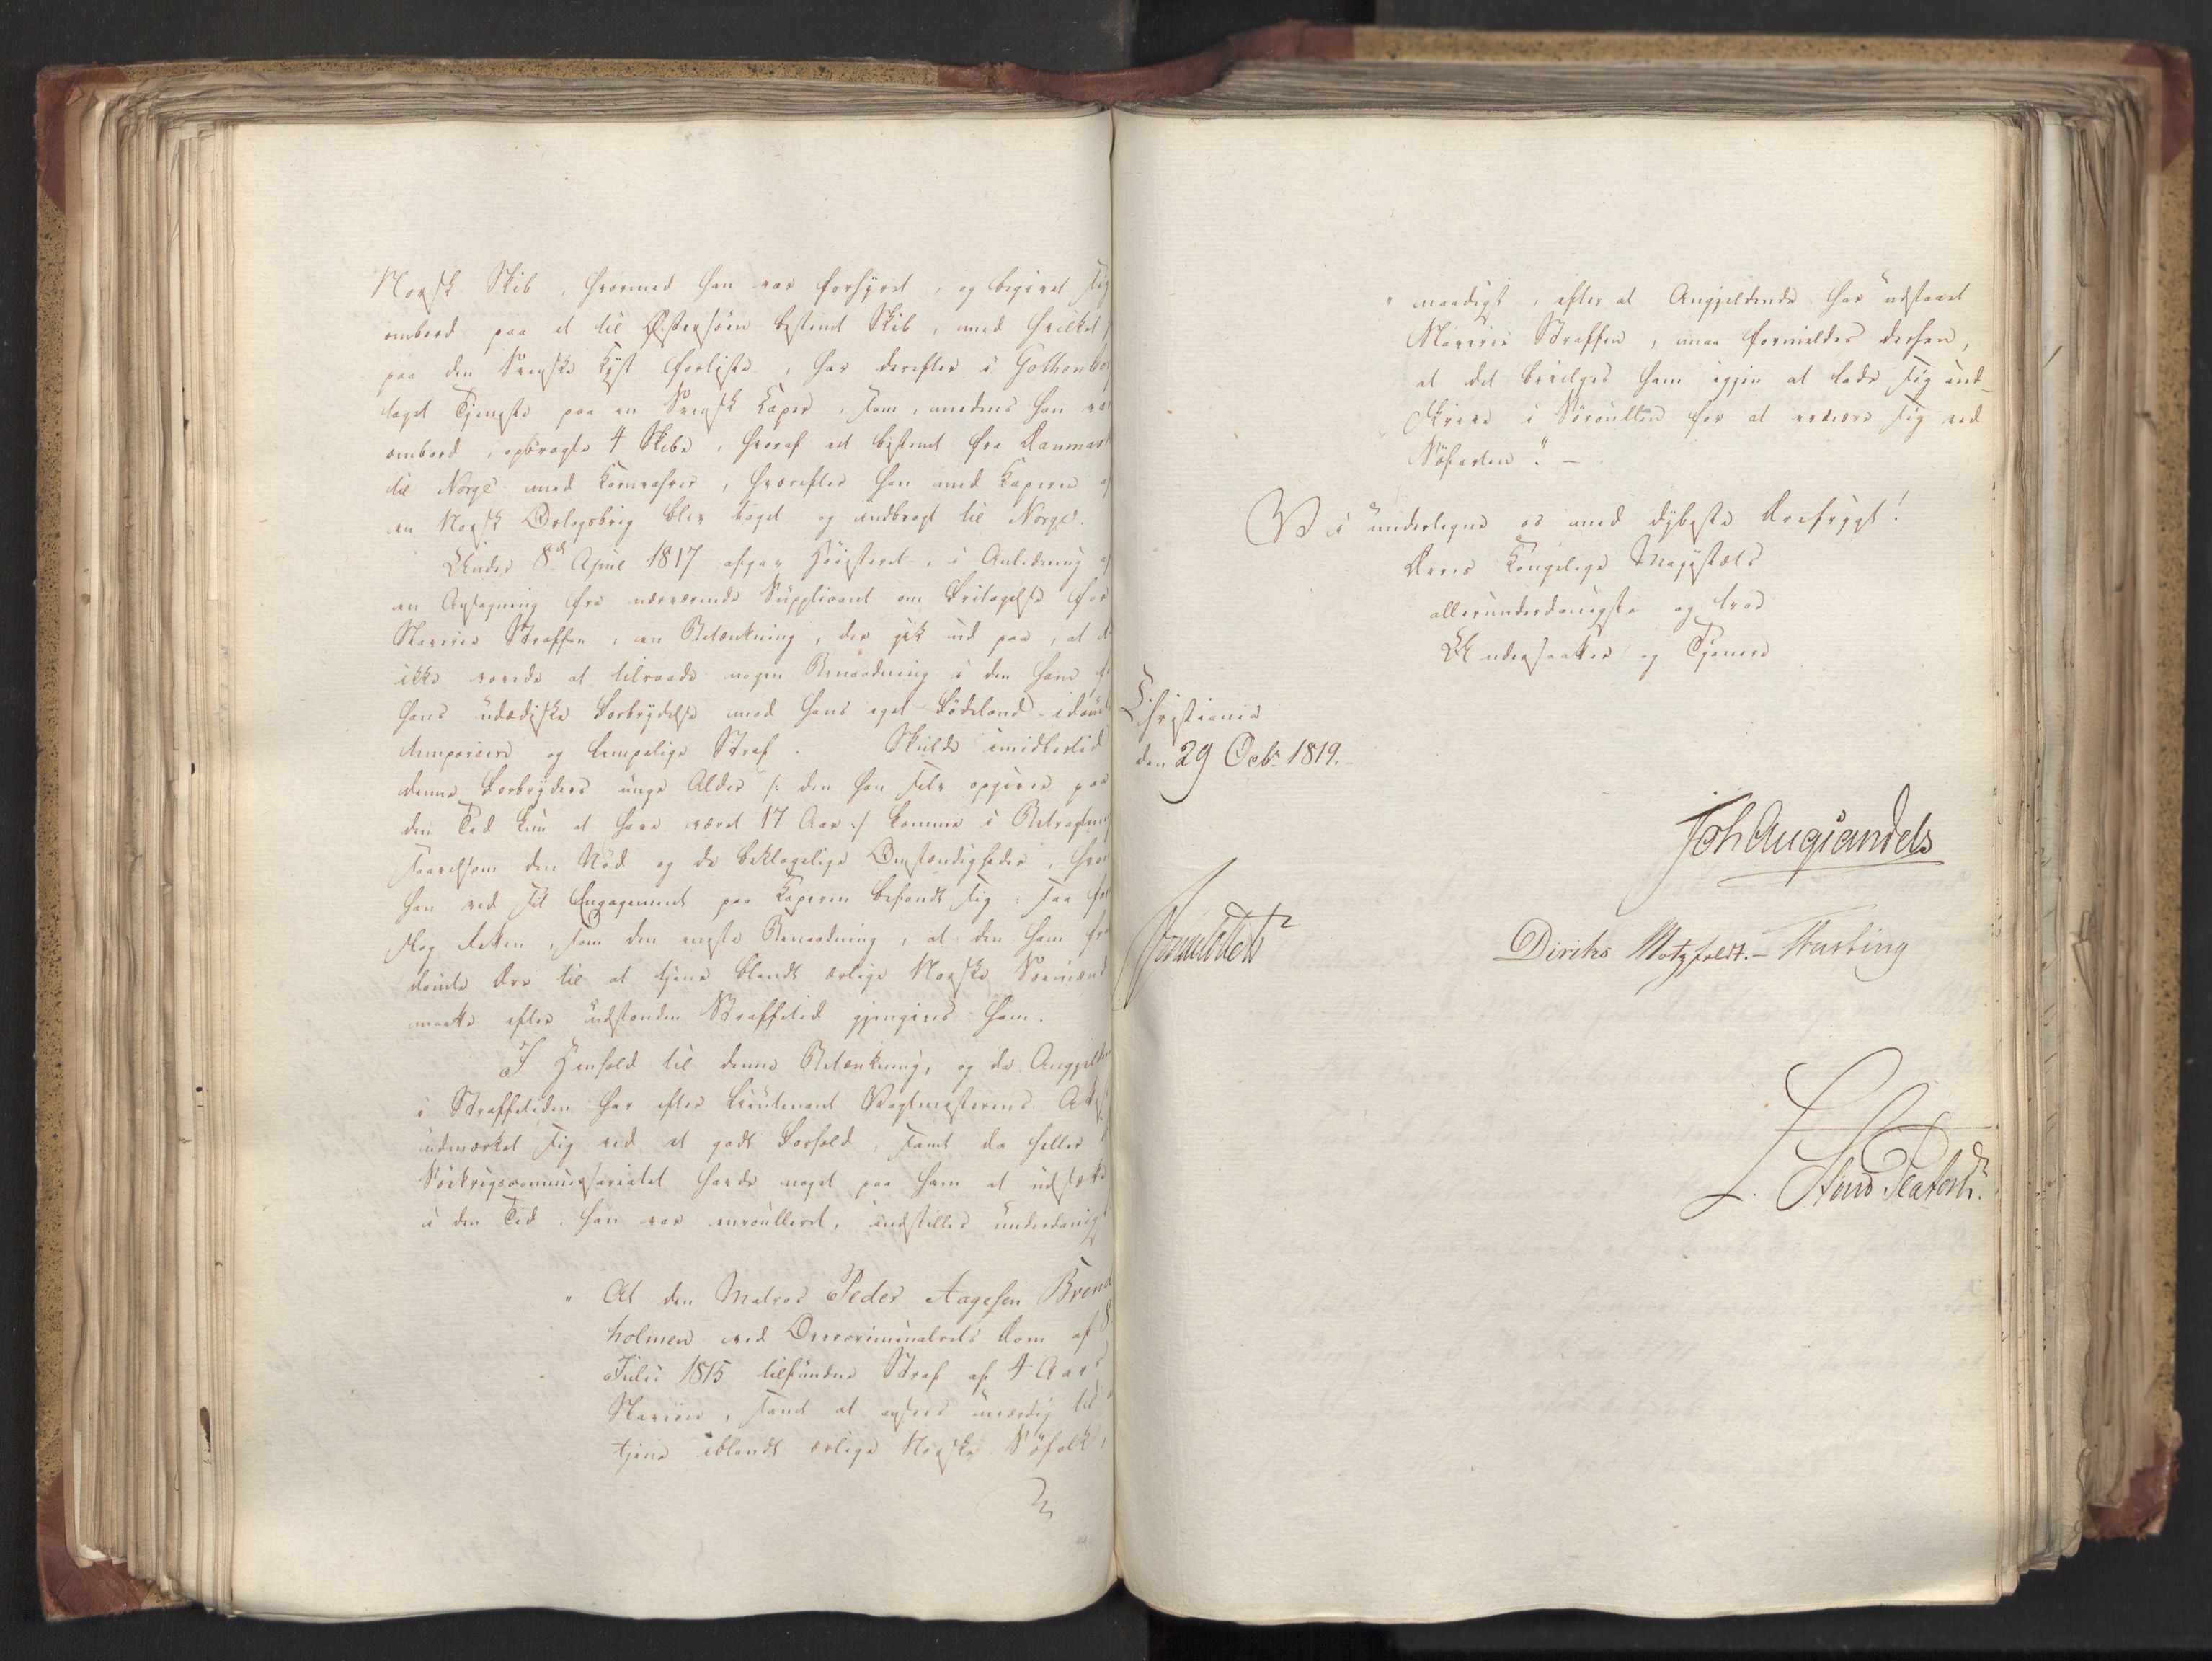 Norsk Skib, hvormed han var forhyret, og begivet sig
ombord paa et til Østersøen bestemt Skib, med hvilket
paa den Svenske Kyst forliste, har derefter i Gothenbor
taget Tjeneste paa en Svensk Caper, som, medens han var
ombord, opbragte 4 Skibe, hvoraf eet bestemt fra Danmark
til Norge med Kornvahrer, hvorefter han med Caperen af
en Norsk Orlogsbrig blev taget og indbragt til Norge.
Under 8de April 1817 afgav Høiesteret, i Anledning af
en Ansøgning fra nærværende Supplicant om Fritagelse for
Slaverie Straffen, en Betænkning, der gik ud paa, at d
ikke vovede at tilraade nogen Benaadning i den ham
hans udædiske Forbrydelse mod hans eget Fødeland idømte
temporaire og lempelige Straf. Skulde imidlertid
denne Forbryders unge Alder /: den han selv opgiver paa
den Tid kun at have været 17 Aar :/ komme i Betragtning
saavelsom den Nød og de beklagelige Omstændigheder, hvor
han ved sit Engagement paa Caperen befandt sig: saa fo
slog Retten, som den eneste Benaadning, at den ham fra
dømte Ære til at tjene blandt ærlige Norske Sømænd
maatte efter udstanden Straffetid gjengives ham.
I Henhold til denne Betænkning, og da Angjeldende
i Straffetiden har efter Lieutenant Vagtmesterens Attest
udmærket sig ved et godt Forhold, samt da heller
Søekrigscommissariatet havde noget paa ham at udsætte
i den Tid, han var enroulleret, indstilles underdanigst
" At den Matros Peder Aagesen Brend
holmen ved Overcriminalrets Dom af 8
Julii 1815 tilfundne Straf af 4 Aars
Slaverie, samt at ansees uværdig til
tjene iblandt ærlige Norske Søfolk,
" naadigst, efter at Angjeldende har udstaaet
Slaverie Straffen, maa formildes derhen,
at det bevilges ham igjen at lade sig ind-
skrive i Søroullen for at ernære sig ved
Søfarten". —
Vi undertegne os med dybeste Ærefrygt!
Deres Kongelige Majestæts
allerunderdanigste og troe
Undersaatter og Tjenere
Christiania
den 29 Octbr 1819.
Joh Aug Sandels
Diriks Motzfeldt. – Fasting
L. Stoud Platou